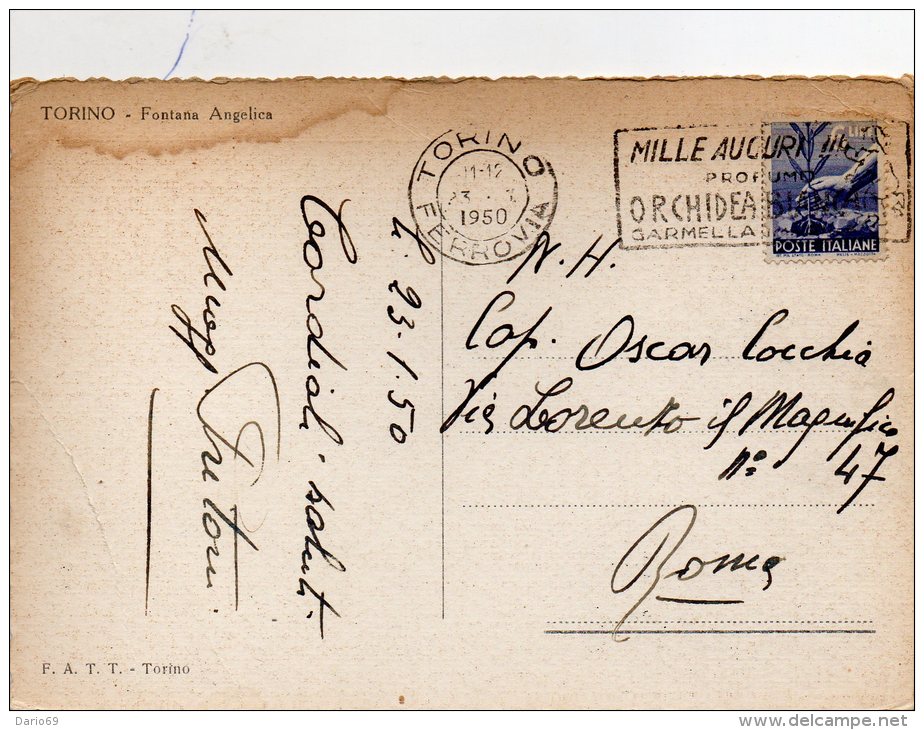 TORINO - Fontana Angelica
TORINO
11-12
23
1950
FERROVIA
MILLE AUGURI !!!
PROFUMO
ORCHIDEA
GARMELLA
POSTE ITALIANE
li 23.1.50
Cordiali saluti.
Magg.
N. H.
Cap. Oscar Cocchia
Via Lorenzo il Magnifico
n° 47
Roma
F. A. T. T. - Torino
Dario69
delcampe.net